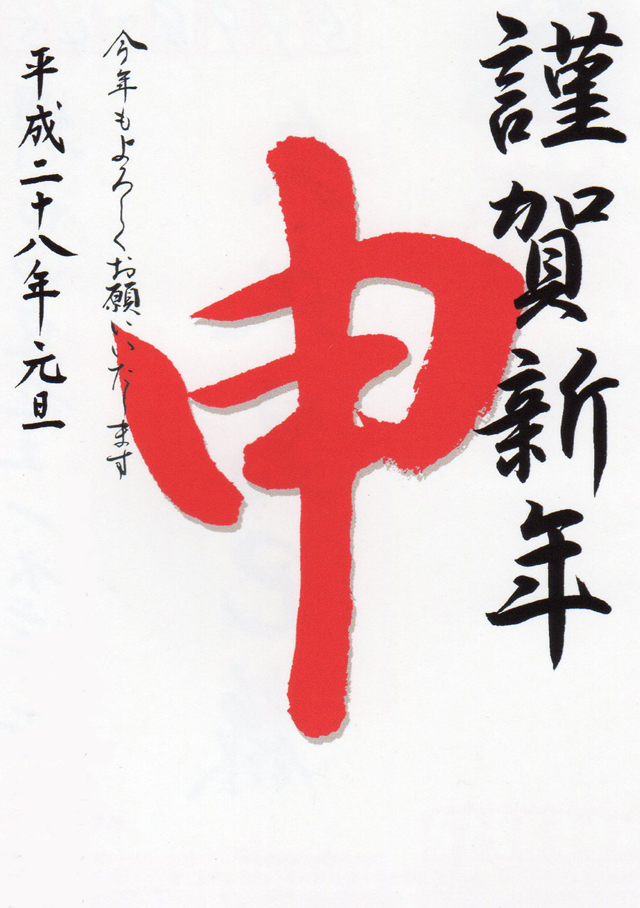 謹賀新年
申
今年もよろしくお願いいたします
平成二十八年元旦